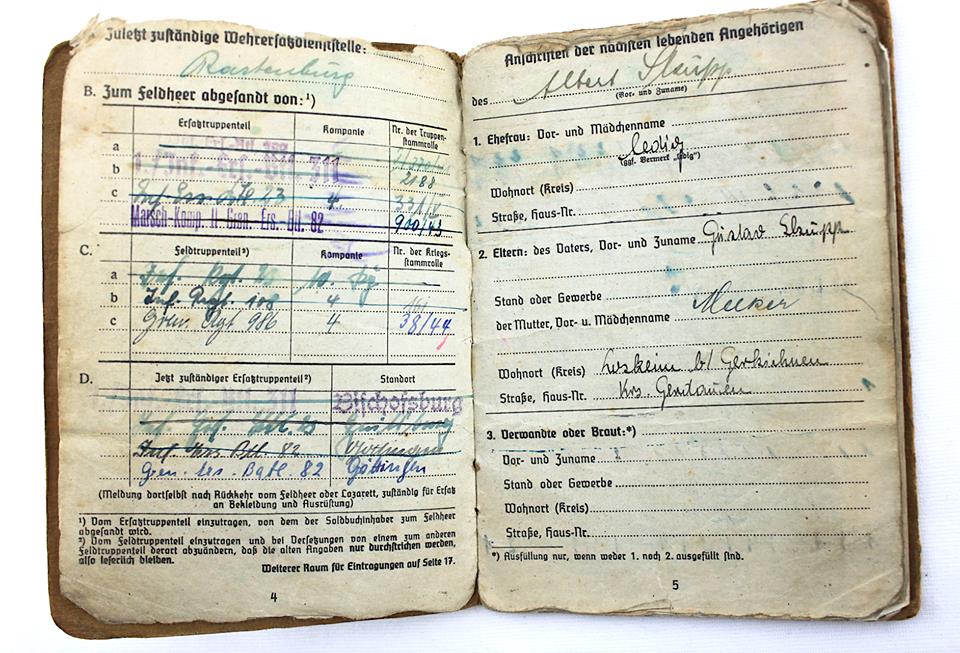 Zuletzt zuständige Wehrersatzdienststelle:
Rastenburg
B. Zum Feldheer abgesandt von:¹)
Ersatztruppenteil Kompanie Nr. der Truppenstammrolle
a
b 311 2188
c 4
Marsch-Komp. II. Gren.-Ers.-Btl. 82 900/43
C. Feldtruppenteil²) Kompanie Nr. der Kriegsstammrolle
a 10.
b 4
c Gren. Rgt 986 4 38/44
D. Jetzt zuständiger Ersatztruppenteil²) Standort
Bischofsburg
Inf. Ers. Btl. 82
Gren. Ers. Batl. 82 Göttingen
(Meldung dortselbst nach Rückkehr vom Feldheer oder Lazarett, zuständig für Ersatz
an Bekleidung und Ausrüstung)
¹) Vom Ersatztruppenteil einzutragen, von dem der Soldbuchinhaber zum Feldheer
abgesandt wird.
²) Vom Feldtruppenteil einzutragen und bei Versetzungen von einem zum anderen
Feldtruppenteil derart abzuändern, daß die alten Angaben nur durchstrichen werden,
also leserlich bleiben.
Weiterer Raum für Eintragungen auf Seite 17.
4
Anschriften der nächsten lebenden Angehörigen
des Albert Skupp
(Vor- und Zuname)
1. Ehefrau: Vor- und Mädchenname
ledig
(ggf. Vermerk „ledig")
Wohnort (Kreis)
Straße, Haus-Nr.
2. Eltern: des Vaters, Vor- und Zuname Gustav Skupp
Stand oder Gewerbe Melker
der Mutter, Vor- u. Mädchenname
Wohnort (Kreis)
Straße, Haus-Nr. Krs. Gerdauen
3. Verwandte oder Braut:*)
Vor- und Zuname
Stand oder Gewerbe
Wohnort (Kreis)
Straße, Haus-Nr.
*) Ausfüllung nur, wenn weder 1. noch 2. ausgefüllt sind.
5